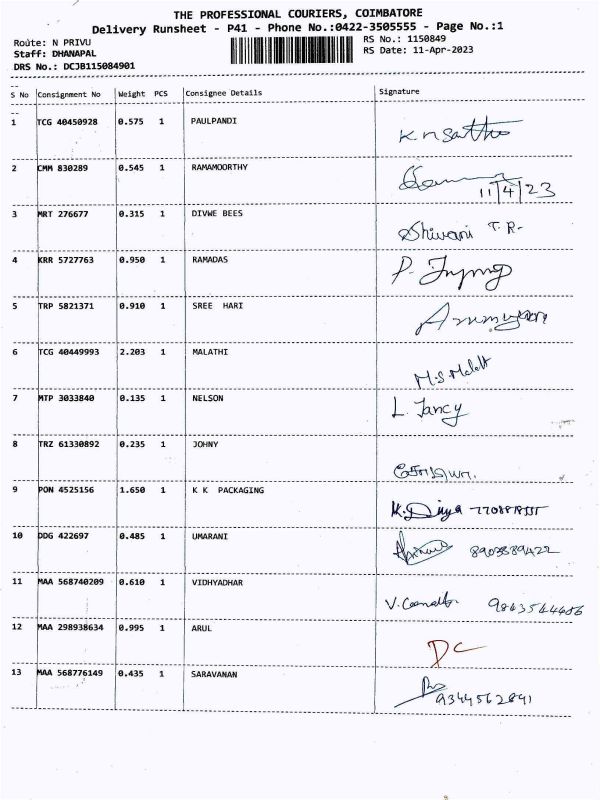 THE PROFESSIONAL COURIERS, COIMBATORE
Delivery Runsheet - P41 - Phone No.:0422-3505555 - Page No.:1
Route: N PRIVU RS No.: 1150849
Staff: DHANAPAL RS Date: 11-Apr-2023
DRS No.: DCJB115084901
S No Consignment No Weight PCS Consignee Details Signature
1 TCG 40450928 0.575 1 PAULPANDI
2 CMM 830289 0.545 1 RAMAMOORTHY
11/4/23
3 MRT 276677 0.315 1 DIVWE BEES
Shivani T.R-
4 KRR 5727763 0.950 1 RAMADAS
5 TRP 5821371 0.910 1 SREE HARI
6 TCG 40449993 2.203 1 MALATHI
M.S.
7 MTP 3033840 0.135 1 NELSON
L. Jancy
8 TRZ 61330892 0.235 1 JOHNY
9 PON 4525156 1.650 1 K K PACKAGING
K. Divya
10 DDG 422697 0.485 1 UMARANI
8903889422
11 MAA 568740209 0.610 1 VIDHYADHAR
12 MAA 298938634 0.995 1 ARUL
DC
13 MAA 568776149 0.435 1 SARAVANAN
9344562841